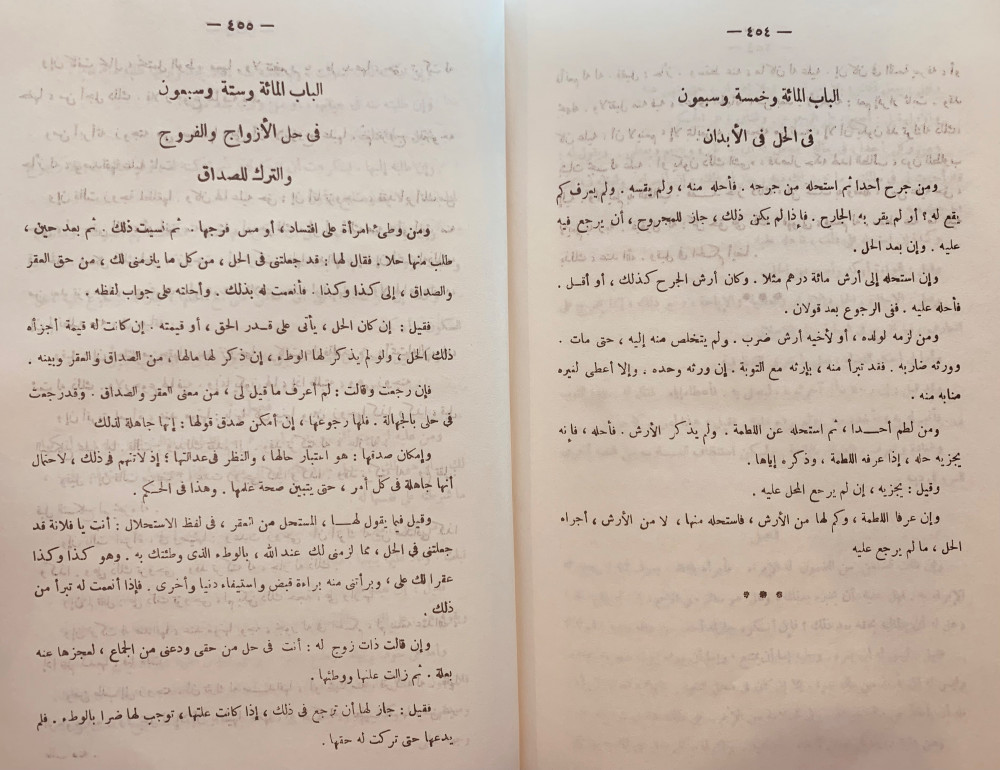 — ٤٥٤ —
الباب المائة وخمسة وسبعون
فى الحل فى الأبدان
ومن جرح أحدا ثم استحله من جرحه . فأحله منه ، ولم يقسه . ولم يعرف كم
يقع له ؟ أو لم يقر به الجارح . فإذا لم يكن ذلك ، جاز للمجروح ، أن يرجع فيه
عليه . وإن بعد الحل .
وإن استحله إلى أرش مائة درهم مثلا . وكان أرش الجرح كذلك ، أو أقل .
فأحله عليه . ففى الرجوع بعد قولان .
ومن لزمه لولده ، أو لأخيه أرش ضرب . ولم يتخلص منه إليه ، حتى مات .
وورثه ضاربه . فقد تبرأ منه ، بإرثه مع التوبة . إن ورثه وحده . وإلا أعطى لغيره
منابه منه .
ومن لطم أحــدا ، ثم استحله عن اللطمة . ولم يذكر الأرش . فأحله ، فإنه
يجزيه حله ، إذا عرفه اللطمة ، وذكره إياها .
وقيل : يجزيه ، إن لم يرجع المحل عليه .
وإن عرفا اللطمة ، وكم لها من الأرش ، فاستحله منها ، لا من الأرش ، أجراه
الحل ، ما لم يرجع عليه
* * *
— ٤٥٥ —
الباب المائة وستة وسبعون
فى حل الأزواج والفروج
والترك للصداق
ومن وطىء امرأة على افتساد ، أو مس فرجها . ثم نسيت ذلك . ثم بعد حين ،
طلب منها حلا . فقال لها : قد جعلتنى فى الحل ، من كل ما يلزمنى لك ، من حق العقر
والصداق ، إلى كذا وكذا . فأنعمت له بذلك . وأجابته على جواب لفظه .
فقيل : إن كان الحل ، يأتى على قــدر الحق ، أو قيمته . إن كانت له قيمة أجزأه
ذلك الحل ، ولو لم يذكر لها الوطء ، إن ذكر لها مالها . من الصداق والعقر وبينه .
فإن رجعت وقالت : لم أعرف ما قيل لى ، من معنى العقر والصداق . وقد رجعت
فى حلى بالجهالة . فلها رجوعها ، إن أمكن صدق قولها : إنها جاهلة لذلك
وإمكان صدقها : هو اعتبار حالها ، والنظر فى عدالتها ؛ إذ لا تتهم فى ذلك ، لاحتمال
أنها جاهلة فى كل أمر ، حتى يتبين صحة علمها . وهذا فى الحكم .
وقيل فيما يقول لهــا ، المستحل من العقر ، فى لفظ الاستحلال : أنت يا فلانة قد
جعلتنى فى الحل ، مما لزمنى لك عند الله ، بالوطء الذى وطئتك به . وهو كذا وكذا
عقرا لك على ، وبرأتنى منه براءة قبض واستيفاء دنيا وأخرى . فإذا أنعمت له تبرأ من
ذلك .
وإن قالت ذات زوج له : أنت فى حل من حقى ودعنى من الجماع ، لعجزها عنه
بعلة . ثم زالت عنها ووطئها .
فقيل : جاز لها أن ترجع فى ذلك ، إذا كانت علتها ، توجب لها ضرا بالوطء . فلم
يدعها حتى تركت له حقها .